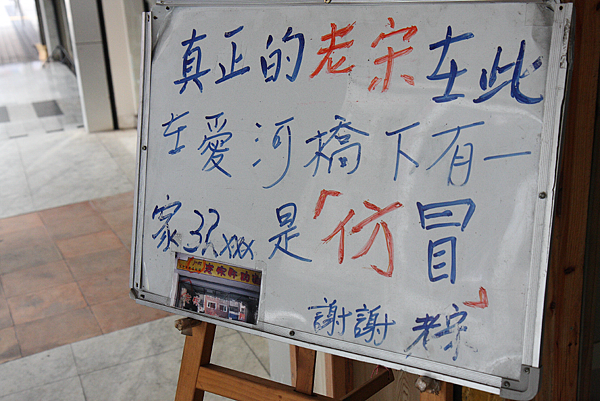 真正的老宋在此
在愛河橋下有一
家32xxx是「仿冒」
謝謝 老宋